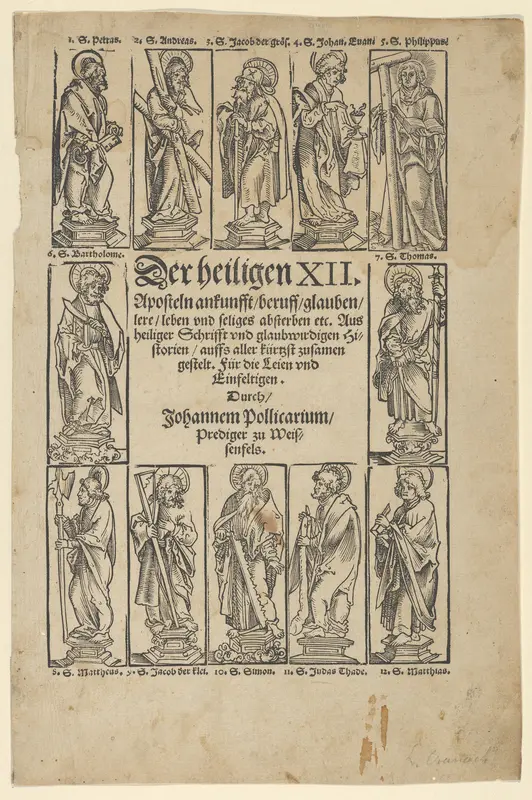 1. S. Petrus. 2. S. Andreas. 3. S. Jacob der grös. 4. S. Johan. Euani 5. S. Philippus.
6. S. Bartholome. 7. S. Thomas.
Der heiligen XII.
Aposteln ankunfft/beruff/glauben/
lere/leben vnd seliges absterben etc. Aus
heiliger Schrifft vnd glaubwirdigen Hi-
storien/auffs aller kürtzst zusamen
gestelt. Für die Leien vnd
Einfeltigen.
Durch/
Johannem Pollicarium/
Prediger zu Weis-
senfels.
8. S. Mattheus. 9. S. Jacob der klei. 10. S. Simon. 11. S. Judas Thade. 12. S. Matthias.